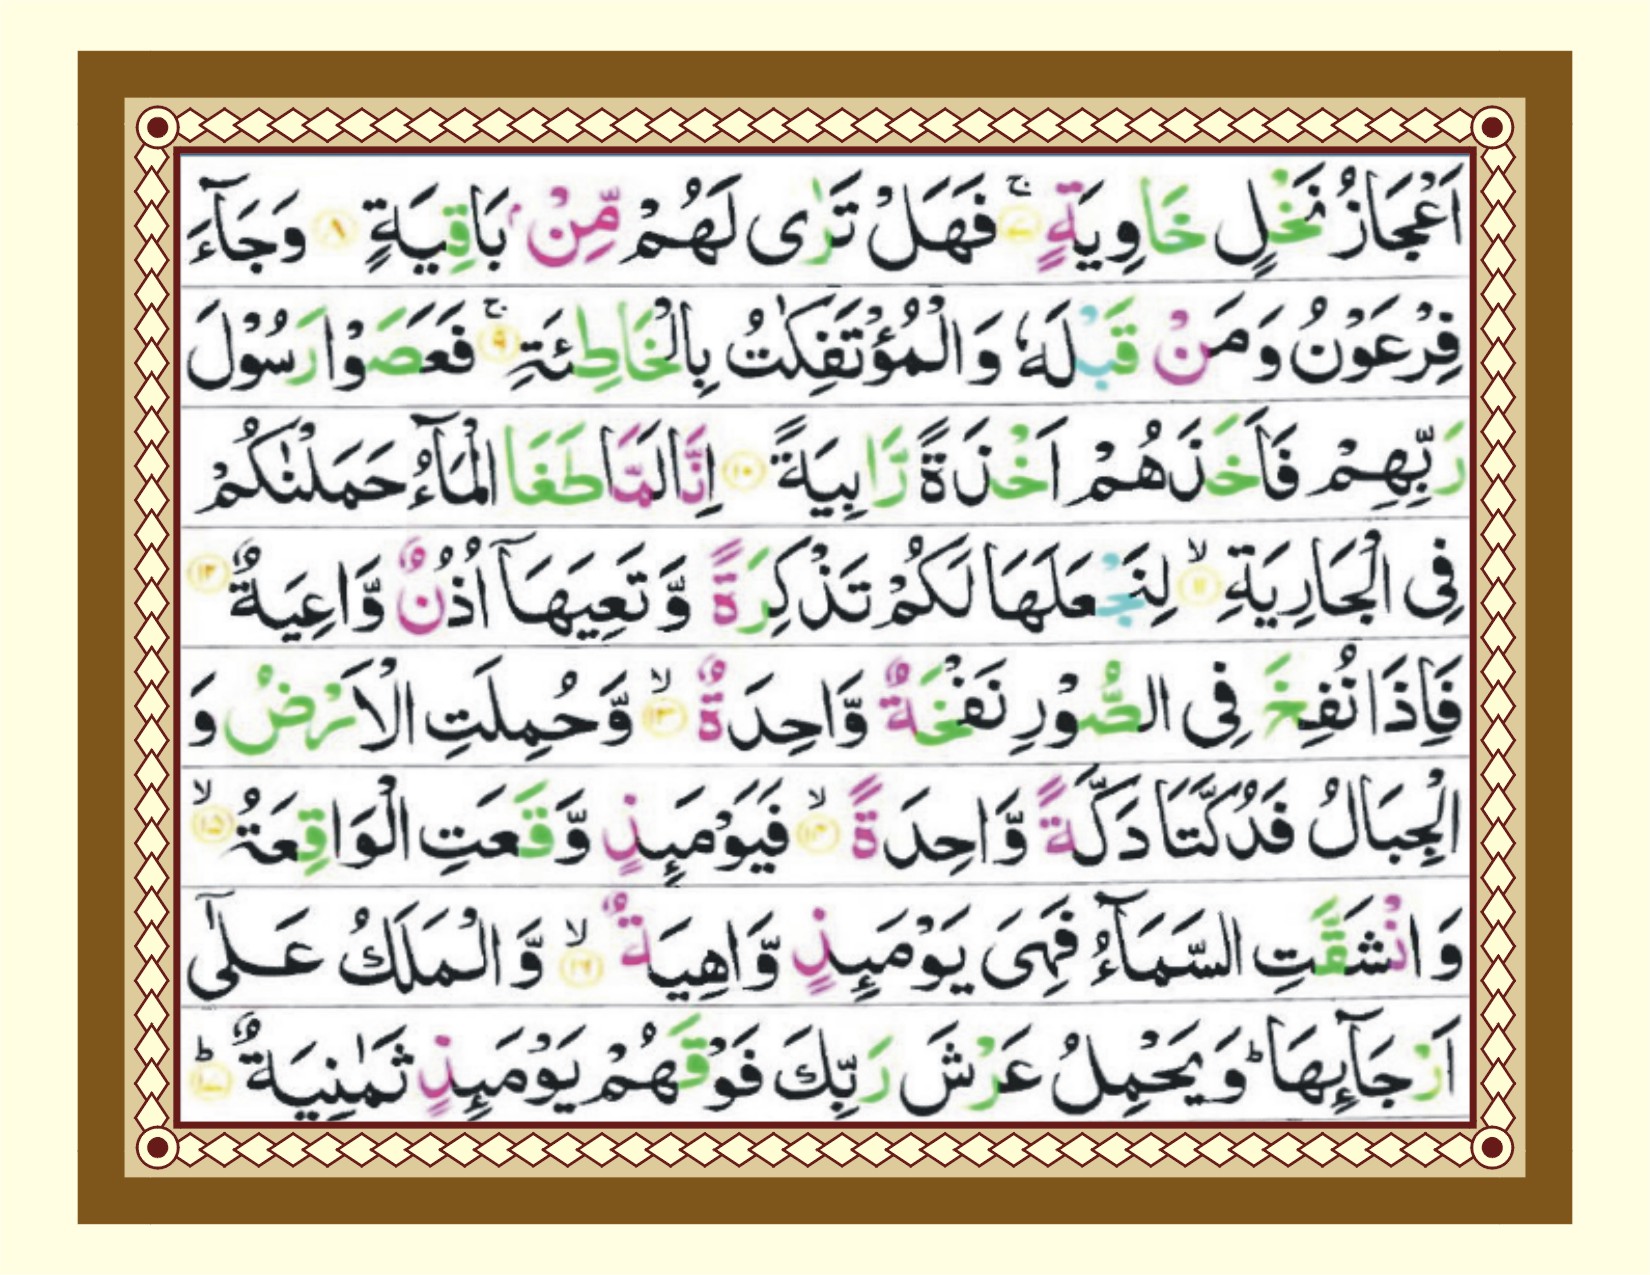 اَعۡجَازُ نَخۡلٍ خَاوِيَةٍ ۚ ﴿۷﴾ فَهَلۡ تَرٰى لَهُمۡ مِّنۡۢ بَاقِيَةٍ ﴿۸﴾ وَجَآءَ
فِرۡعَوۡنُ وَمَنۡ قَبۡلَهٗ وَالۡمُؤۡتَفِكٰتُ بِالۡخَاطِئَةِ ۚ ﴿۹﴾ فَعَصَوۡا رَسُوۡلَ
رَبِّهِمۡ فَاَخَذَهُمۡ اَخۡذَةً رَّابِيَةً ﴿۱۰﴾ اِنَّا لَمَّا طَغَا الۡمَآءُ حَمَلۡنٰكُمۡ
فِى الۡجَارِيَةِ ۙ ﴿۱۱﴾ لِنَجۡعَلَهَا لَكُمۡ تَذۡكِرَةً وَّتَعِيَهَاۤ اُذُنٌ وَّاعِيَةٌ ﴿۱۲﴾
فَاِذَا نُفِخَ فِى الصُّوۡرِ نَفۡخَةٌ وَّاحِدَةٌ ۙ ﴿۱۳﴾ وَّحُمِلَتِ الۡاَرۡضُ وَ
الۡجِبَالُ فَدُكَّتَا دَكَّةً وَّاحِدَةً ۙ ﴿۱۴﴾ فَيَوۡمَٮِٕذٍ وَّقَعَتِ الۡوَاقِعَةُ ۙ ﴿۱۵﴾
وَانۡشَقَّتِ السَّمَآءُ فَهِىَ يَوۡمَٮِٕذٍ وَّاهِيَةٌ ۙ ﴿۱۶﴾ وَّالۡمَلَكُ عَلٰٓى
اَرۡجَآٮِٕهَا ؕ وَيَحۡمِلُ عَرۡشَ رَبِّكَ فَوۡقَهُمۡ يَوۡمَٮِٕذٍ ثَمٰنِيَةٌ ؕ ﴿۱۷﴾